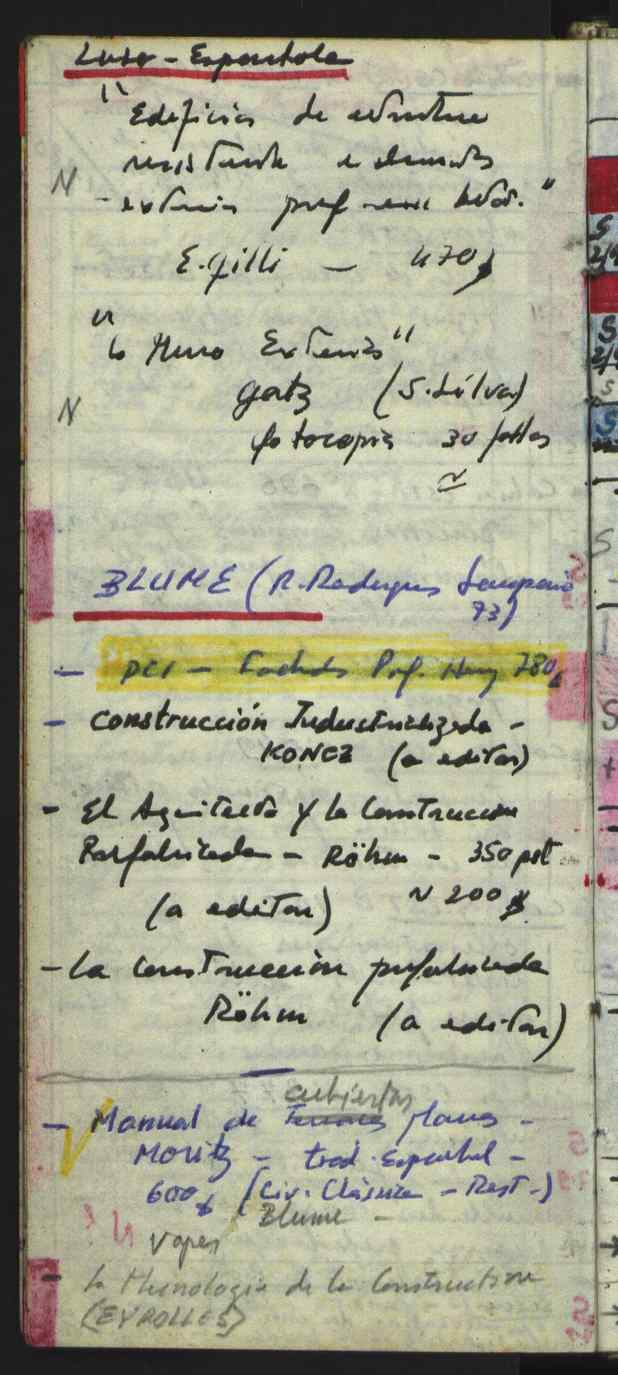 Luso-Española
"Edificios de estructura
resistente e elementos
N
exterior pref
E. Gilli — 470$
"Le Muro Exterior"
Gatz (S. Silva)
N
fotocopia 30 folhas
BLUME (R. Rodrigues Sampaio
93)
— PCI — Fachadas Pref. 780$
— Construcción Industrializada -
KONCZ (a editar)
- El Arquitecto y la Construccion
Prefabricada - Röhm - 350 pst
(a editar) ~ 200$
- La Construccion prefabricada
Röhm (a editar)
cubiertas
— Manual de planas -
MORITZ - trad. Español -
600$ (Civ. Clássica - Rest-)
Blume -
Vapeur
- la Thecnologie de la Construction
(EYROLLES)